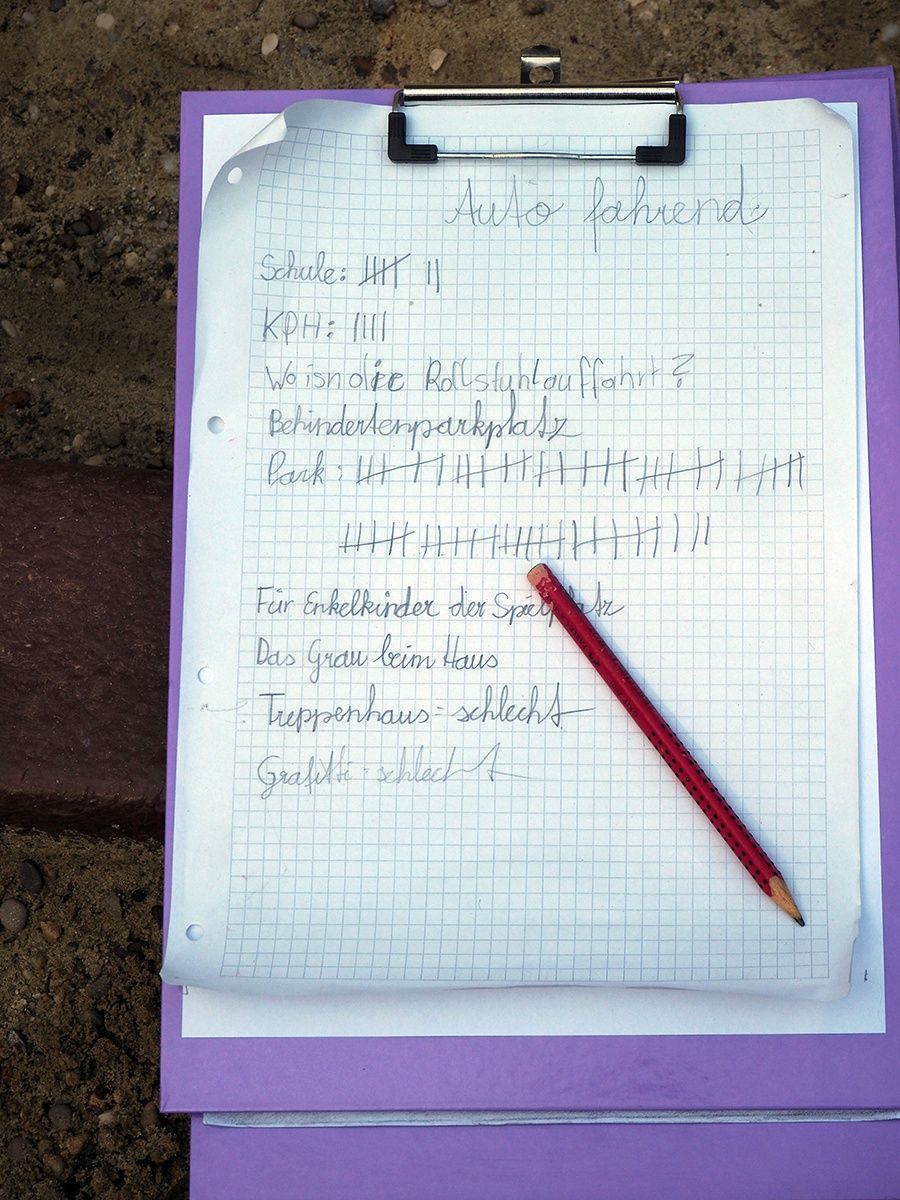 Auto fahrend
Schule: |||| ||
KPH: ||||
Wo isn die Rollstuhlauffahrt?
Behindertenparkplatz
Park:
Für Enkelkinder der Spielplatz
Das Grau beim Haus
Treppenhaus = schlecht
Grafitti - schlecht